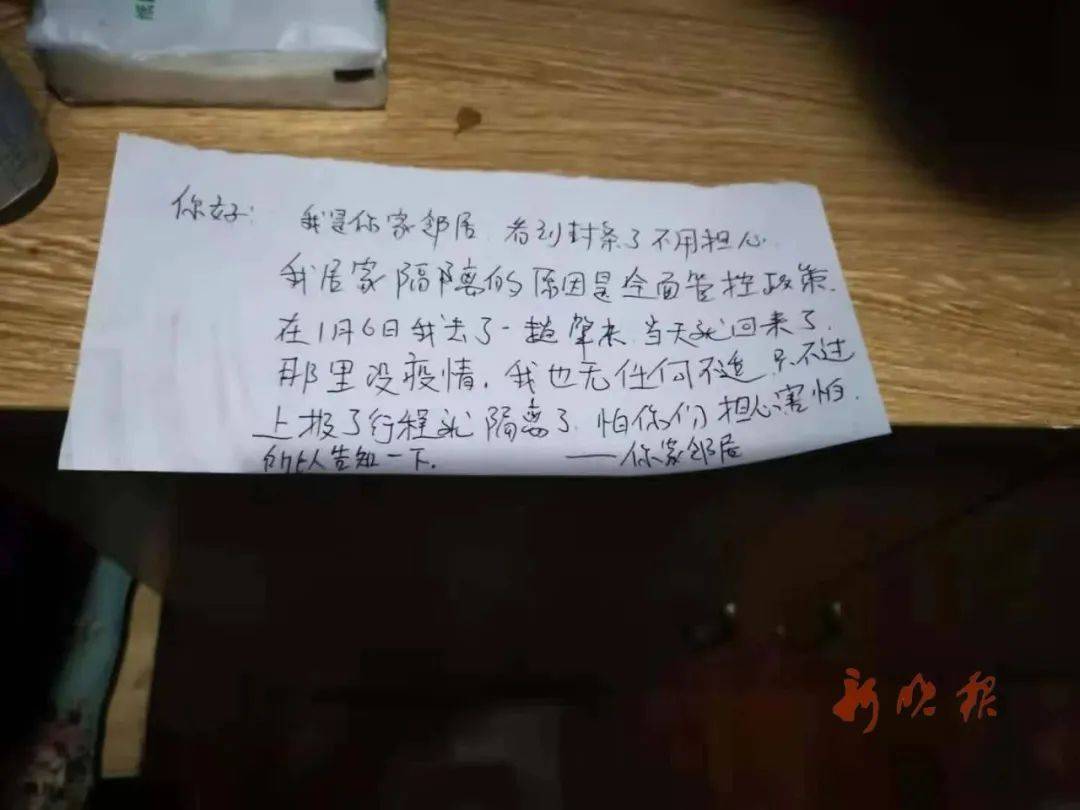 你好: 我是你家邻居 看到封条了不用担心.
我居家隔离的原因是全面管控政策.
在1月6日我去了一趟肇东 当天就回来了.
那里没疫情. 我也无任何不适 只不过
上报了行程就隔离了. 怕你们担心害怕.
所以告知一下. ——你家邻居
新晚报